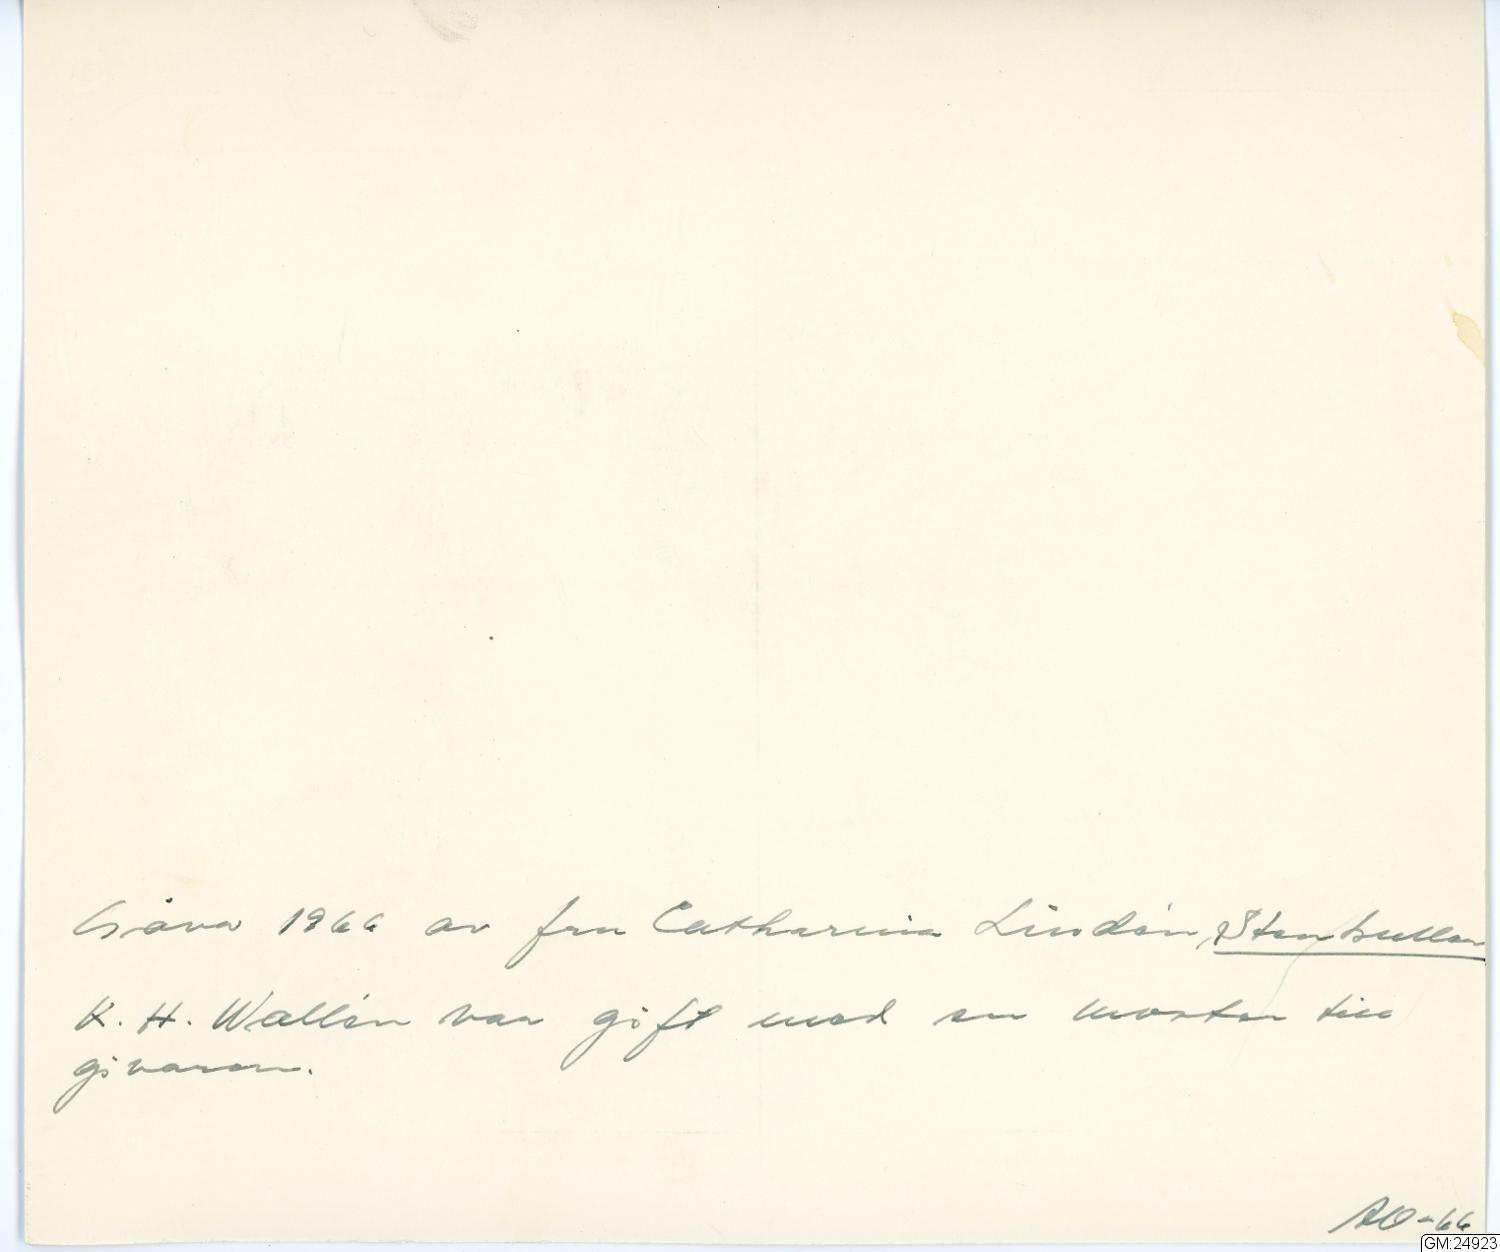 Gåva 1966 av fru Catharina Lindén, Stenkullen
K. H. Wallin var gift med en moster till
givaren.
AO-66
GM:24923